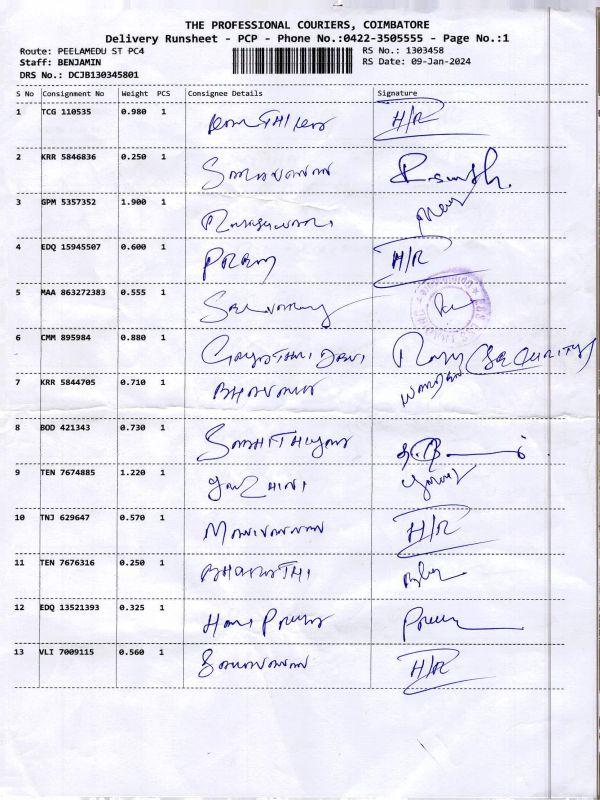 THE PROFESSIONAL COURIERS, COIMBATORE
Delivery Runsheet - PCP - Phone No.:0422-3505555 - Page No.:1
Route: PEELAMEDU ST PC4 RS No.: 1303458
Staff: BENJAMIN RS Date: 09-Jan-2024
DRS No.: DCJB130345801
S No Consignment No Weight PCS Consignee Details Signature
1 TCG 110535 0.980 1 H/R
2 KRR 5846836 0.250 1 Saravanan
3 GPM 5357352 1.900 1
4 EDQ 15945507 0.600 1 Prem H/R
5 MAA 863272383 0.555 1
6 CMM 895984 0.880 1 Gayathri Devi (SECURITY)
7 KRR 5844705 0.710 1 Bhavani WARDEN
8 BOD 421343 0.730 1
9 TEN 7674885 1.220 1 Yazhini
10 TNJ 629647 0.570 1 Manivannan H/R
11 TEN 7676316 0.250 1 Bharathi
12 EDQ 13521393 0.325 1 Hari
13 VLI 7009115 0.560 1 Saravanan H/R